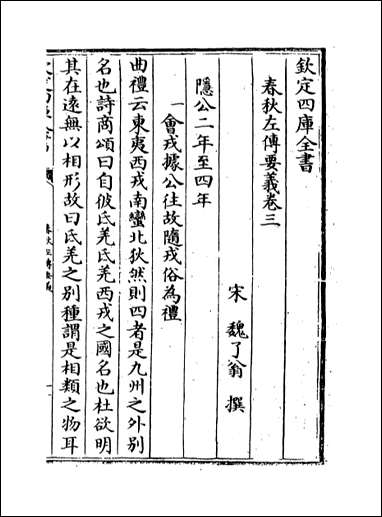 欽定四庫全書
春秋左傳要義卷三
宋 魏了翁 撰
隱公二年至四年
一會戎據公往故隨戎俗為禮
曲禮云東夷西戎南蠻北狄然則四者是九州之外別
名也詩商頌曰自彼氐羌氐羌西戎之國名也杜欲明
其在遠無以相形故曰氐羌之别種謂是相類之物耳